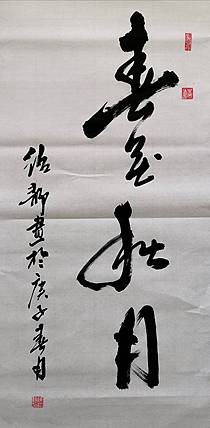 春花秋月
書於庚子春月